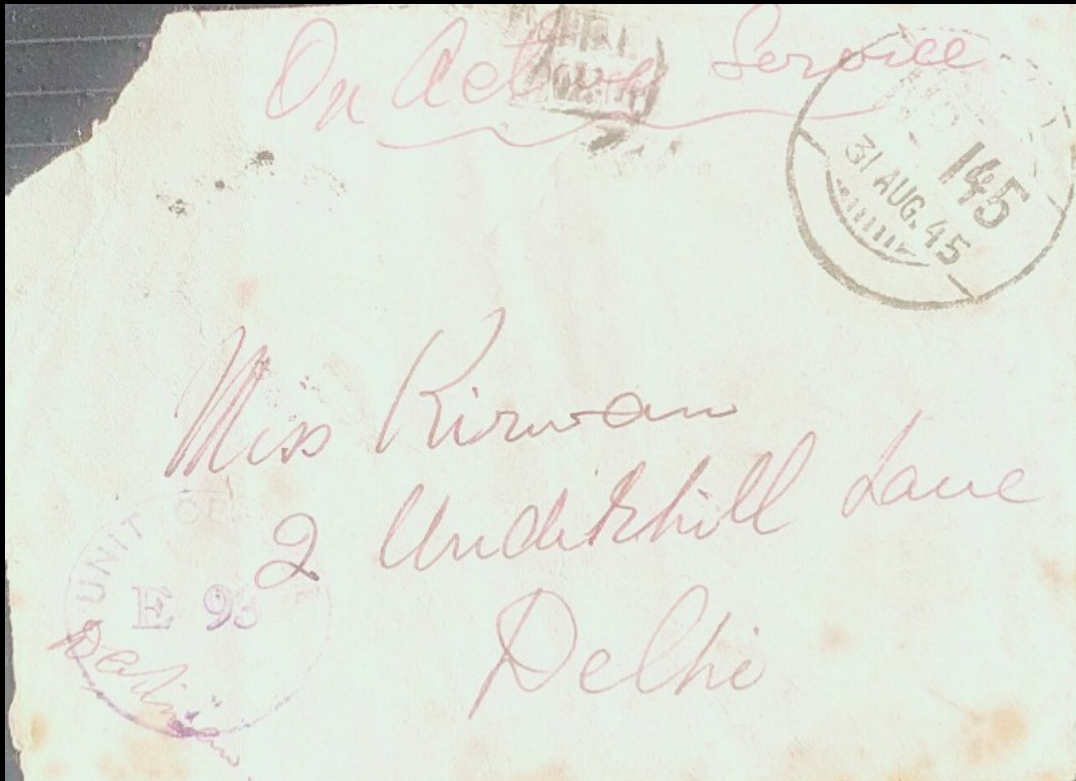 On Active Service
145
31 AUG. 45
Miss Kirwan
2 Underhill Lane
Delhi
UNIT
E 93